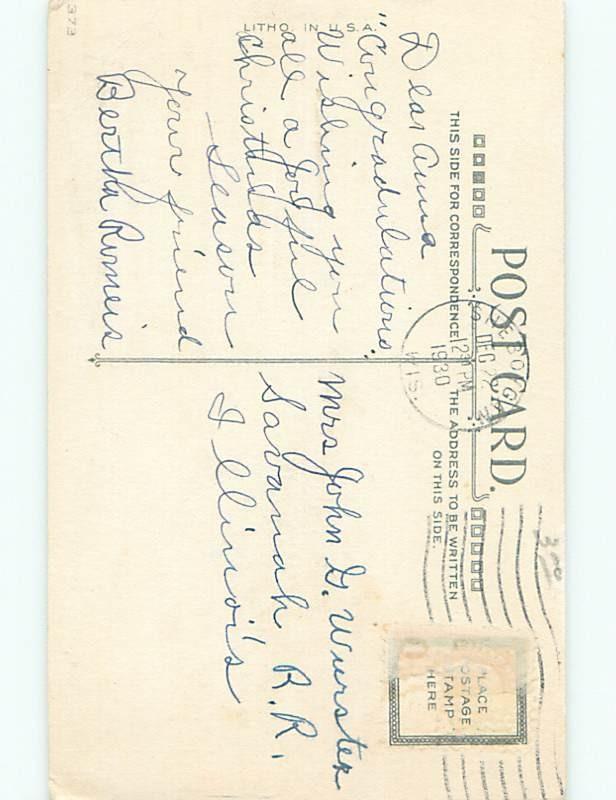 POST CARD.
THIS SIDE FOR CORRESPONDENCE
THE ADDRESS TO BE WRITTEN
ON THIS SIDE.
DEC
12 PM
1930
WIS.
3.00
PLACE
POSTAGE
STAMP
HERE
Dear Anna
"Congradulations"
Wishing you
all a joyful
Christmas
Season
Your friend
Bertha Romeis
Mrs John G. Wurster
Savanah R.R.
Illinois
LITHO IN U.S.A.
373